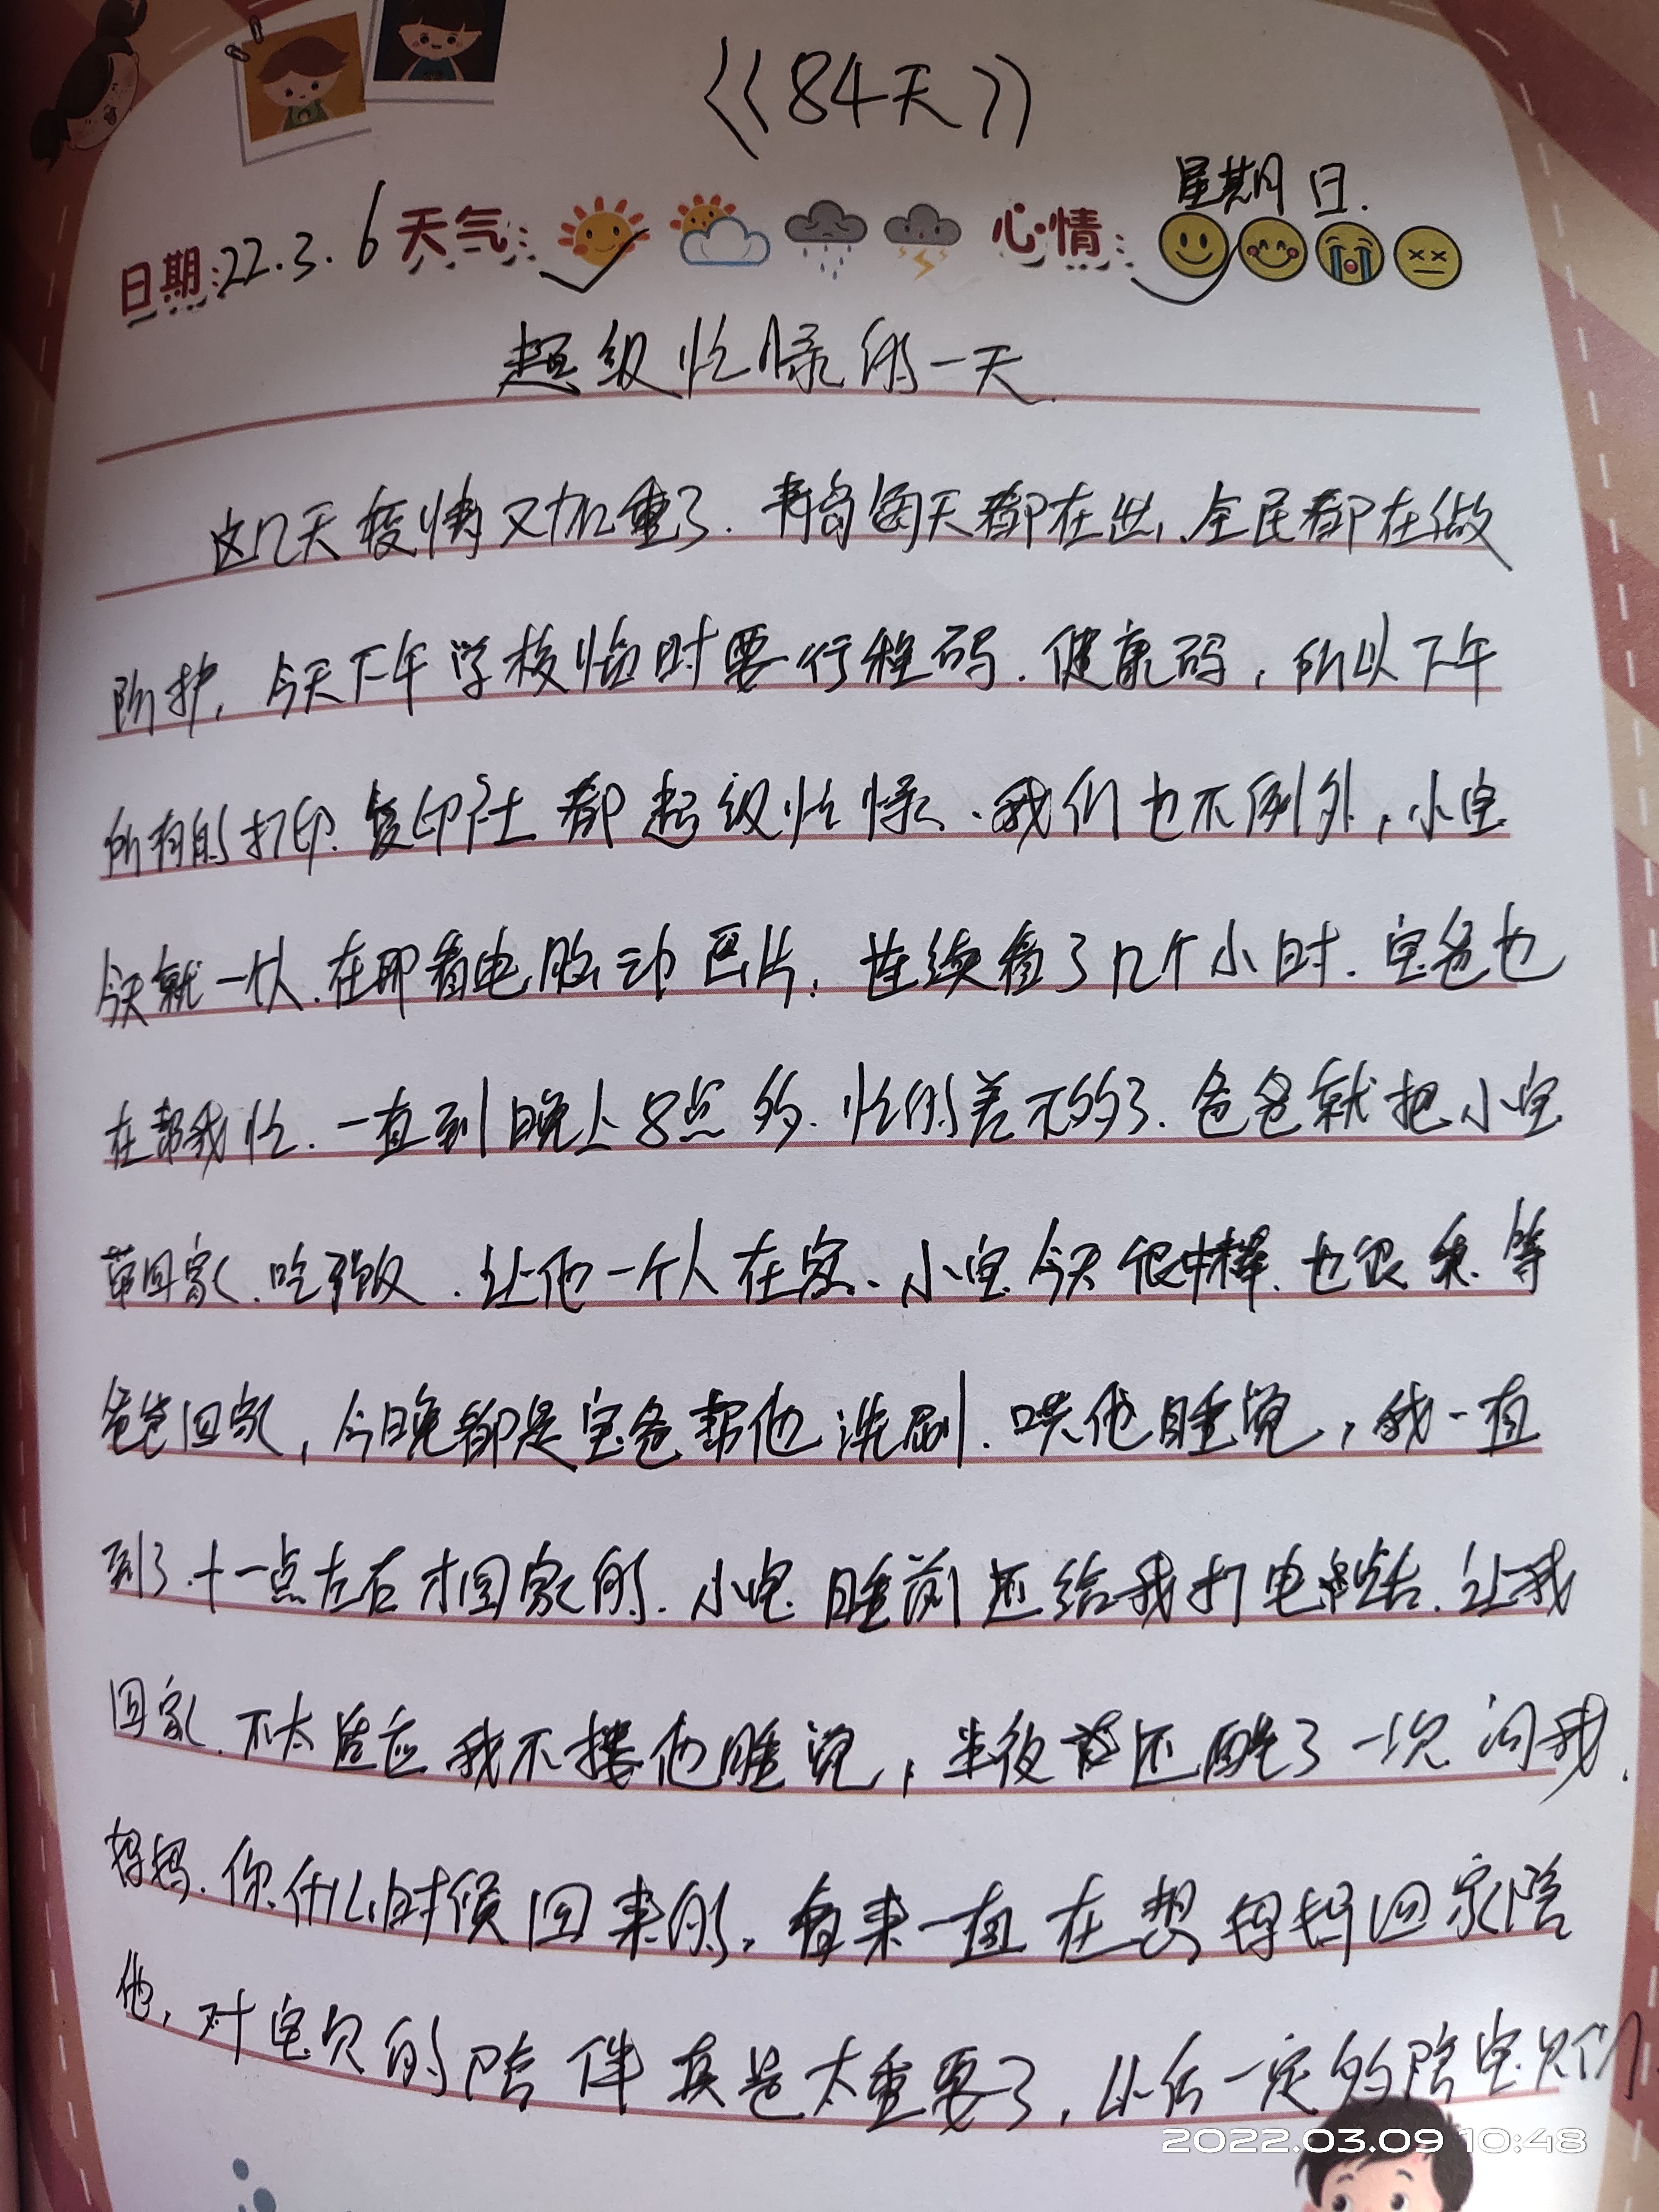 《84天》
星期日.
日期:22.3.6 天气: 心情:
超级忙碌的一天.
这几天疫情又加重了.青岛每天都在出,全民都在做
防护,今天下午学校临时要行程码.健康码,所以下午
所有的打印.复印社都超级忙碌、我们也不例外,小宝
今天就一个人.在那看电脑动画片,连续看了几个小时.宝爸也
在帮我忙.一直到晚上8点多.忙的差不多了.爸爸就把小宝
带回家.吃了饭.让他一个人在家、小宝今天很棒.也很乖.等
爸爸回家,今晚都是宝爸帮他洗刷.哄他睡觉,我一直
到了十一点左右才回家的.小宝睡前还给我打电话.让我
回家.不太适应我不搂他睡觉,半夜还醒了一次问我.
妈妈.你什么时候回来的,看来一直在想妈妈回家陪
他,对宝贝的陪伴真是太重要了,以后一定多陪宝贝们
2022.03.09 10:48